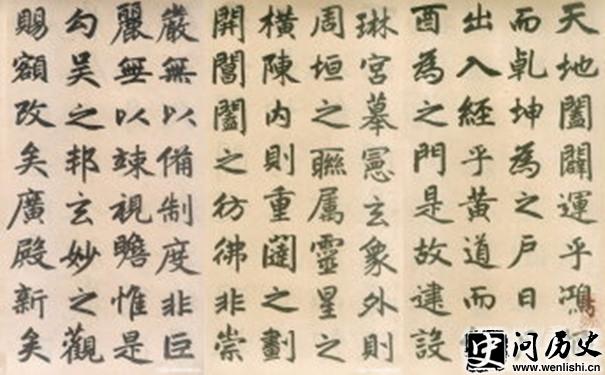 天地闔闢運乎鴻
而乾坤為之戶日
出入經乎黃道而
酉為之門是故建設
琳宮摹憲玄象外則
周垣之聯属靈星之
橫陳内則重闥之劃
開閶闔之彷彿非崇
嚴無以備制度非巨
麗無以竦視瞻惟是
勾吳之邦玄妙之觀
賜額改矣廣殿新矣
问历史
www.wenlishi.cn